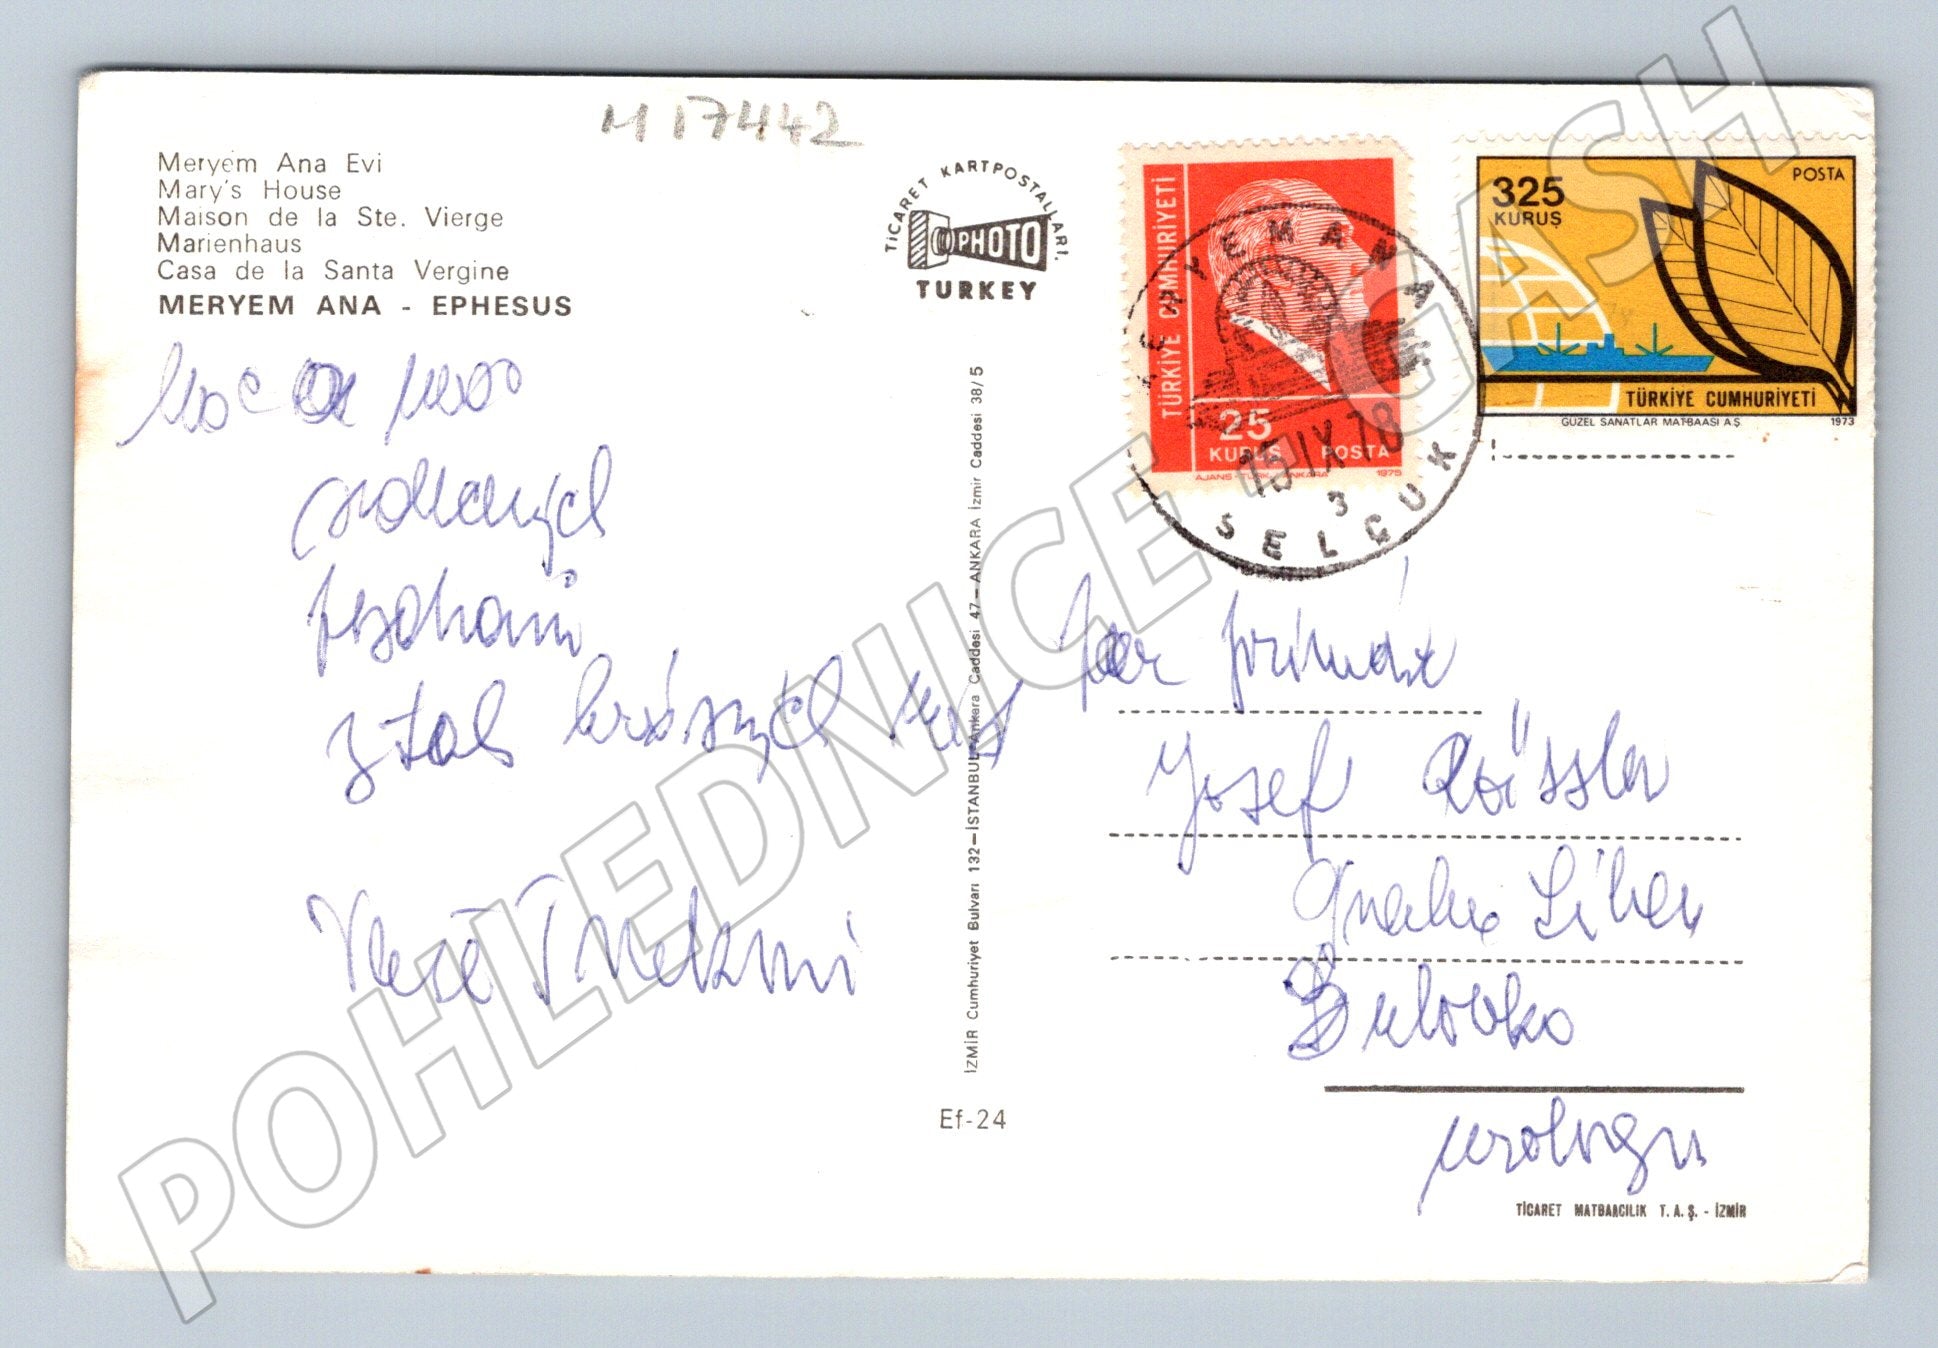 M 17442
Meryem Ana Evi
Mary's House
Maison de la Ste. Vierge
Marienhaus
Casa de la Santa Vergine
MERYEM ANA - EPHESUS
TİCARET KARTPOSTALLARI.
PHOTO
TURKEY
TÜRKİYE CUMHURİYETİ
25
KURUŞ POSTA
AJANS TÜRK - ANKARA 1975
MERYEMANA
15 IX 78
3
SELÇUK
325
KURUŞ
POSTA
TÜRKİYE CUMHURİYETİ
GÜZEL SANATLAR MATBAASI A.Ş. 1973
srdečných
pozdravů
z tak krásných míst
İZMİR Cumhuriyet Bulvarı 132—İSTANBUL Ankara Caddesi 47—ANKARA İzmir Caddesi 38/5
Ef-24
primář
Josef Rössler
Praha Libeň
Bulovka
urologie
TİCARET MATBAACILIK T. A. Ş. - İZMİR
POHLEDNICE - GASH